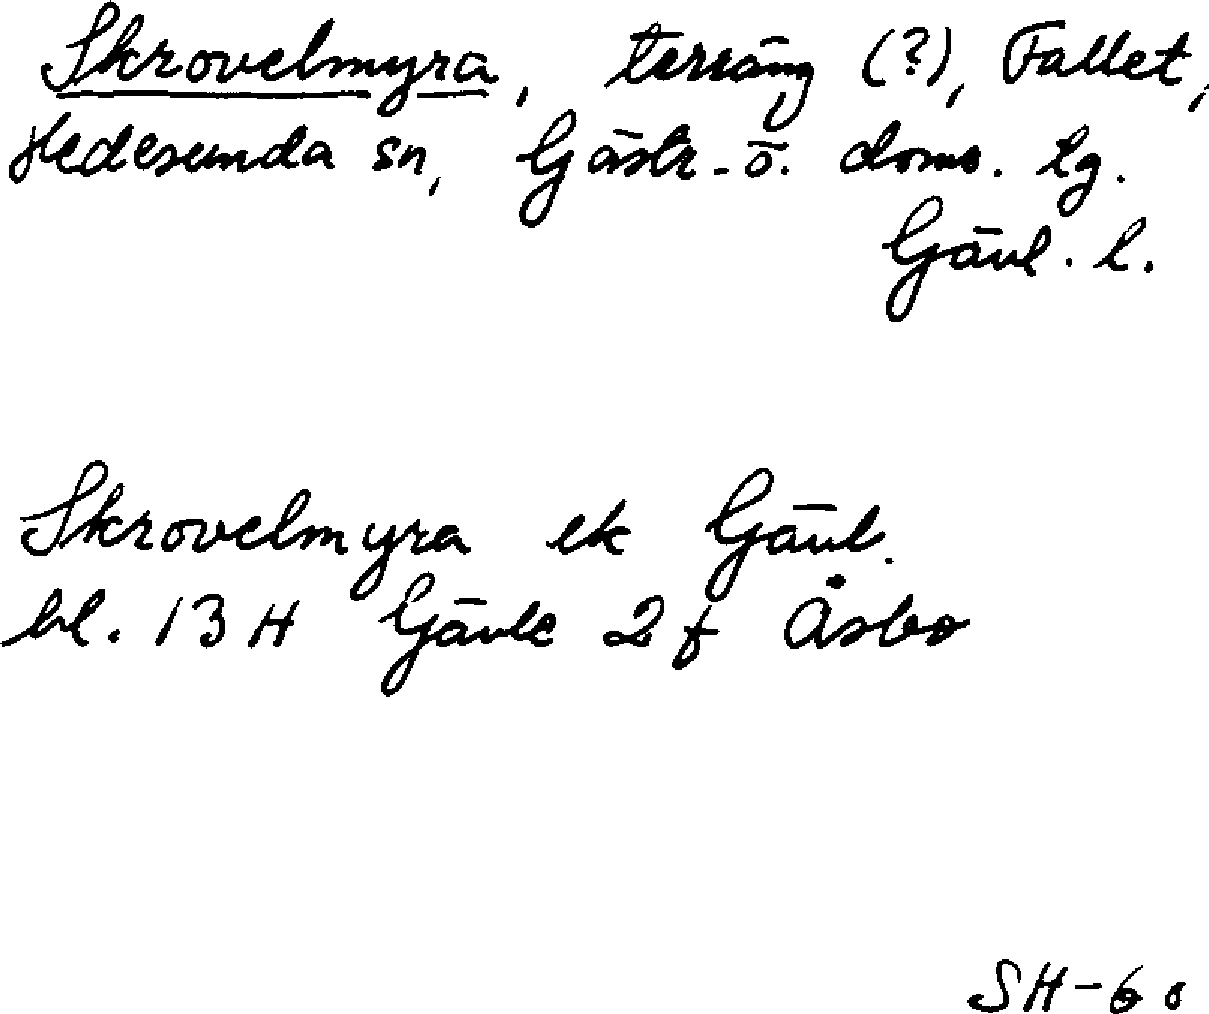 Skrovelmyra, terräng (?), Fallet,
Hedesunda sn, Gästr. ö. doms. lg.
Gävl. l.
Skrovelmyra ek Gävl.
bl. 13 H Gävle 2 f Åsbo
SH-60